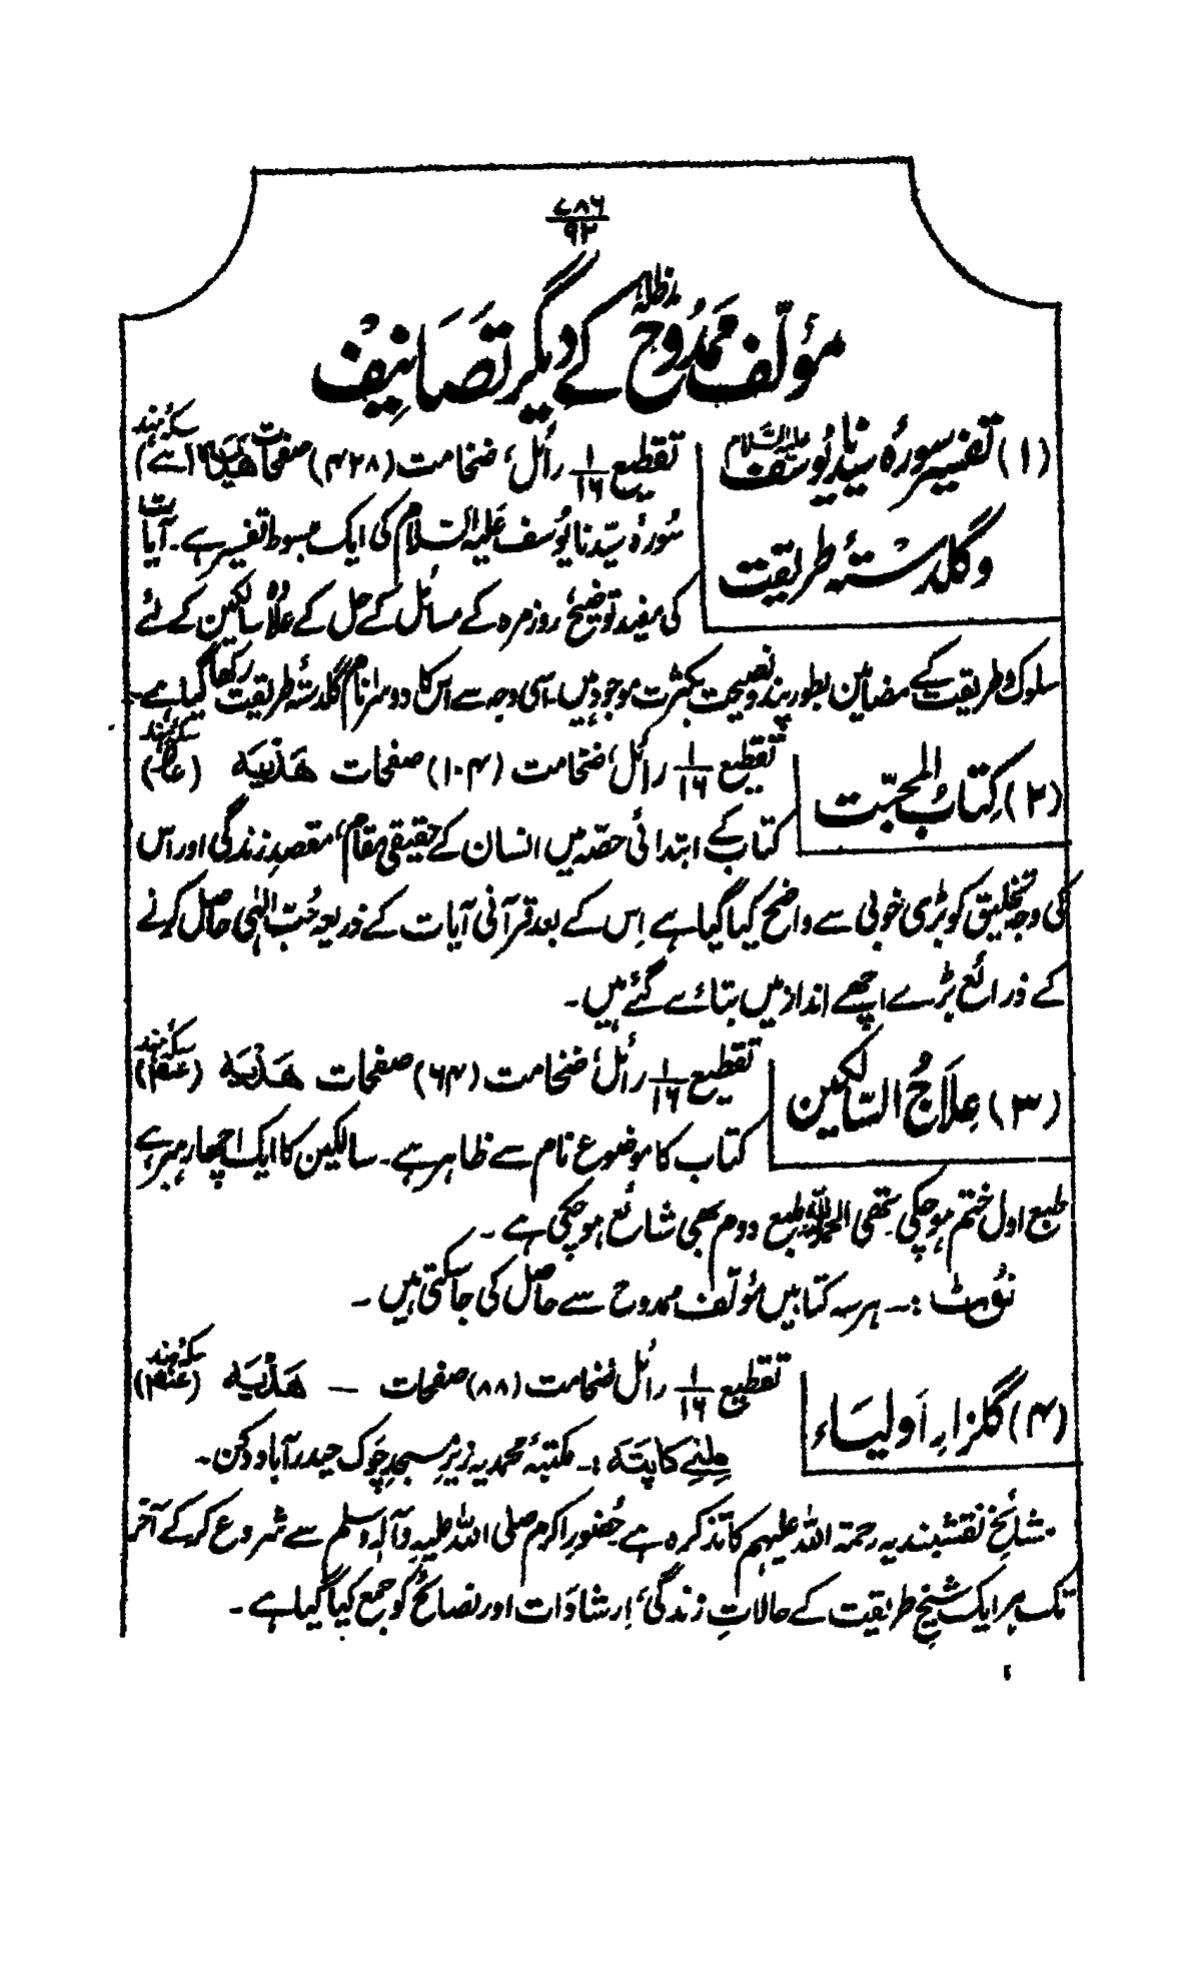 ۷۸۶
۹۲
مؤلّف ممدُوح مدظلہٗ کے دیگر تَصَانِیفْ
(۱) تفسیر سورۂ سیّدنا یُوسف علیہ السّلام
و گلدستۂ طریقت
تقطیع ۱/۱۶ رائل، ضخامت (۴۲۸) صفحات ھَدیَہ سکۂ ہند
سُورۂ سیّدنا یوُسف عَلیہ السّلام کی ایک مبسوط تفسیر ہے۔ آیات
کی مفید توضیح، روزمرہ کے مسائل کے حل کے علاوہ سالکین کے لئے
سلوک و طریقت کے مضامین بطور پند و نصیحت بکثرت موجود ہیں۔ اسی وجہ سے اس کا دوسرا نام گلدستۂ طریقت رکھا گیا ہے۔
(۲) کِتَابُ المحبّت
تقطیع ۱/۱۶ رائل، ضخامت (۱۰۴) صفحات ھَدْیَہ سکۂ ہند
کتاب کے ابتدائی حصّہ میں انسان کے حقیقی مقام، مقصدِ زندگی اور اس
کی وجہ تخلیق کو بڑی خوبی سے واضح کیا گیا ہے اِس کے بعد قرآنی آیات کے ذریعہ حُبّ الٰہی حاصل کرنے
کے ذرائع بڑے اچھے انداز میں بتائے گئے ہیں۔
(۳) عِلاَجُ السّالکین
تقطیع ۱/۱۶ رائل، ضخامت (۶۴) صفحات ھَدْیَہ سکۂ ہند
کتاب کا موضوع نام سے ظاہر ہے۔ سالکین کا ایک اچھا رہبر ہے
طبع اول ختم ہو چکی تھی الحمدللہ طبع دوم بھی شائع ہو چکی ہے۔
نوُٹ :۔ ہر سہ کتابیں مؤلّف ممدوح سے حاصل کی جا سکتی ہیں۔
(۴) گلزارِ اَولیَاء
تقطیع ۱/۱۶ رائل ضخامت (۸۸) صفحات — ھَدْیَہ سکۂ ہند
مِلنے کا پَتَہ :۔ مکتبۂ محمدیہ زیرِ مسجدِ چوک حیدرآباد دکن۔
مشائخِ نقشبندیہ رحمۃ اللہ علیہم کا تذکرہ ہے حضورِ اکرم صلی اللہ علیہ وآلہٖ وسلم سے شروع کر کے آخر
تک ہر ایک شیخِ طریقت کے حالاتِ زندگی، اِرشادَات اور نصائح کو جمع کیا گیا ہے۔